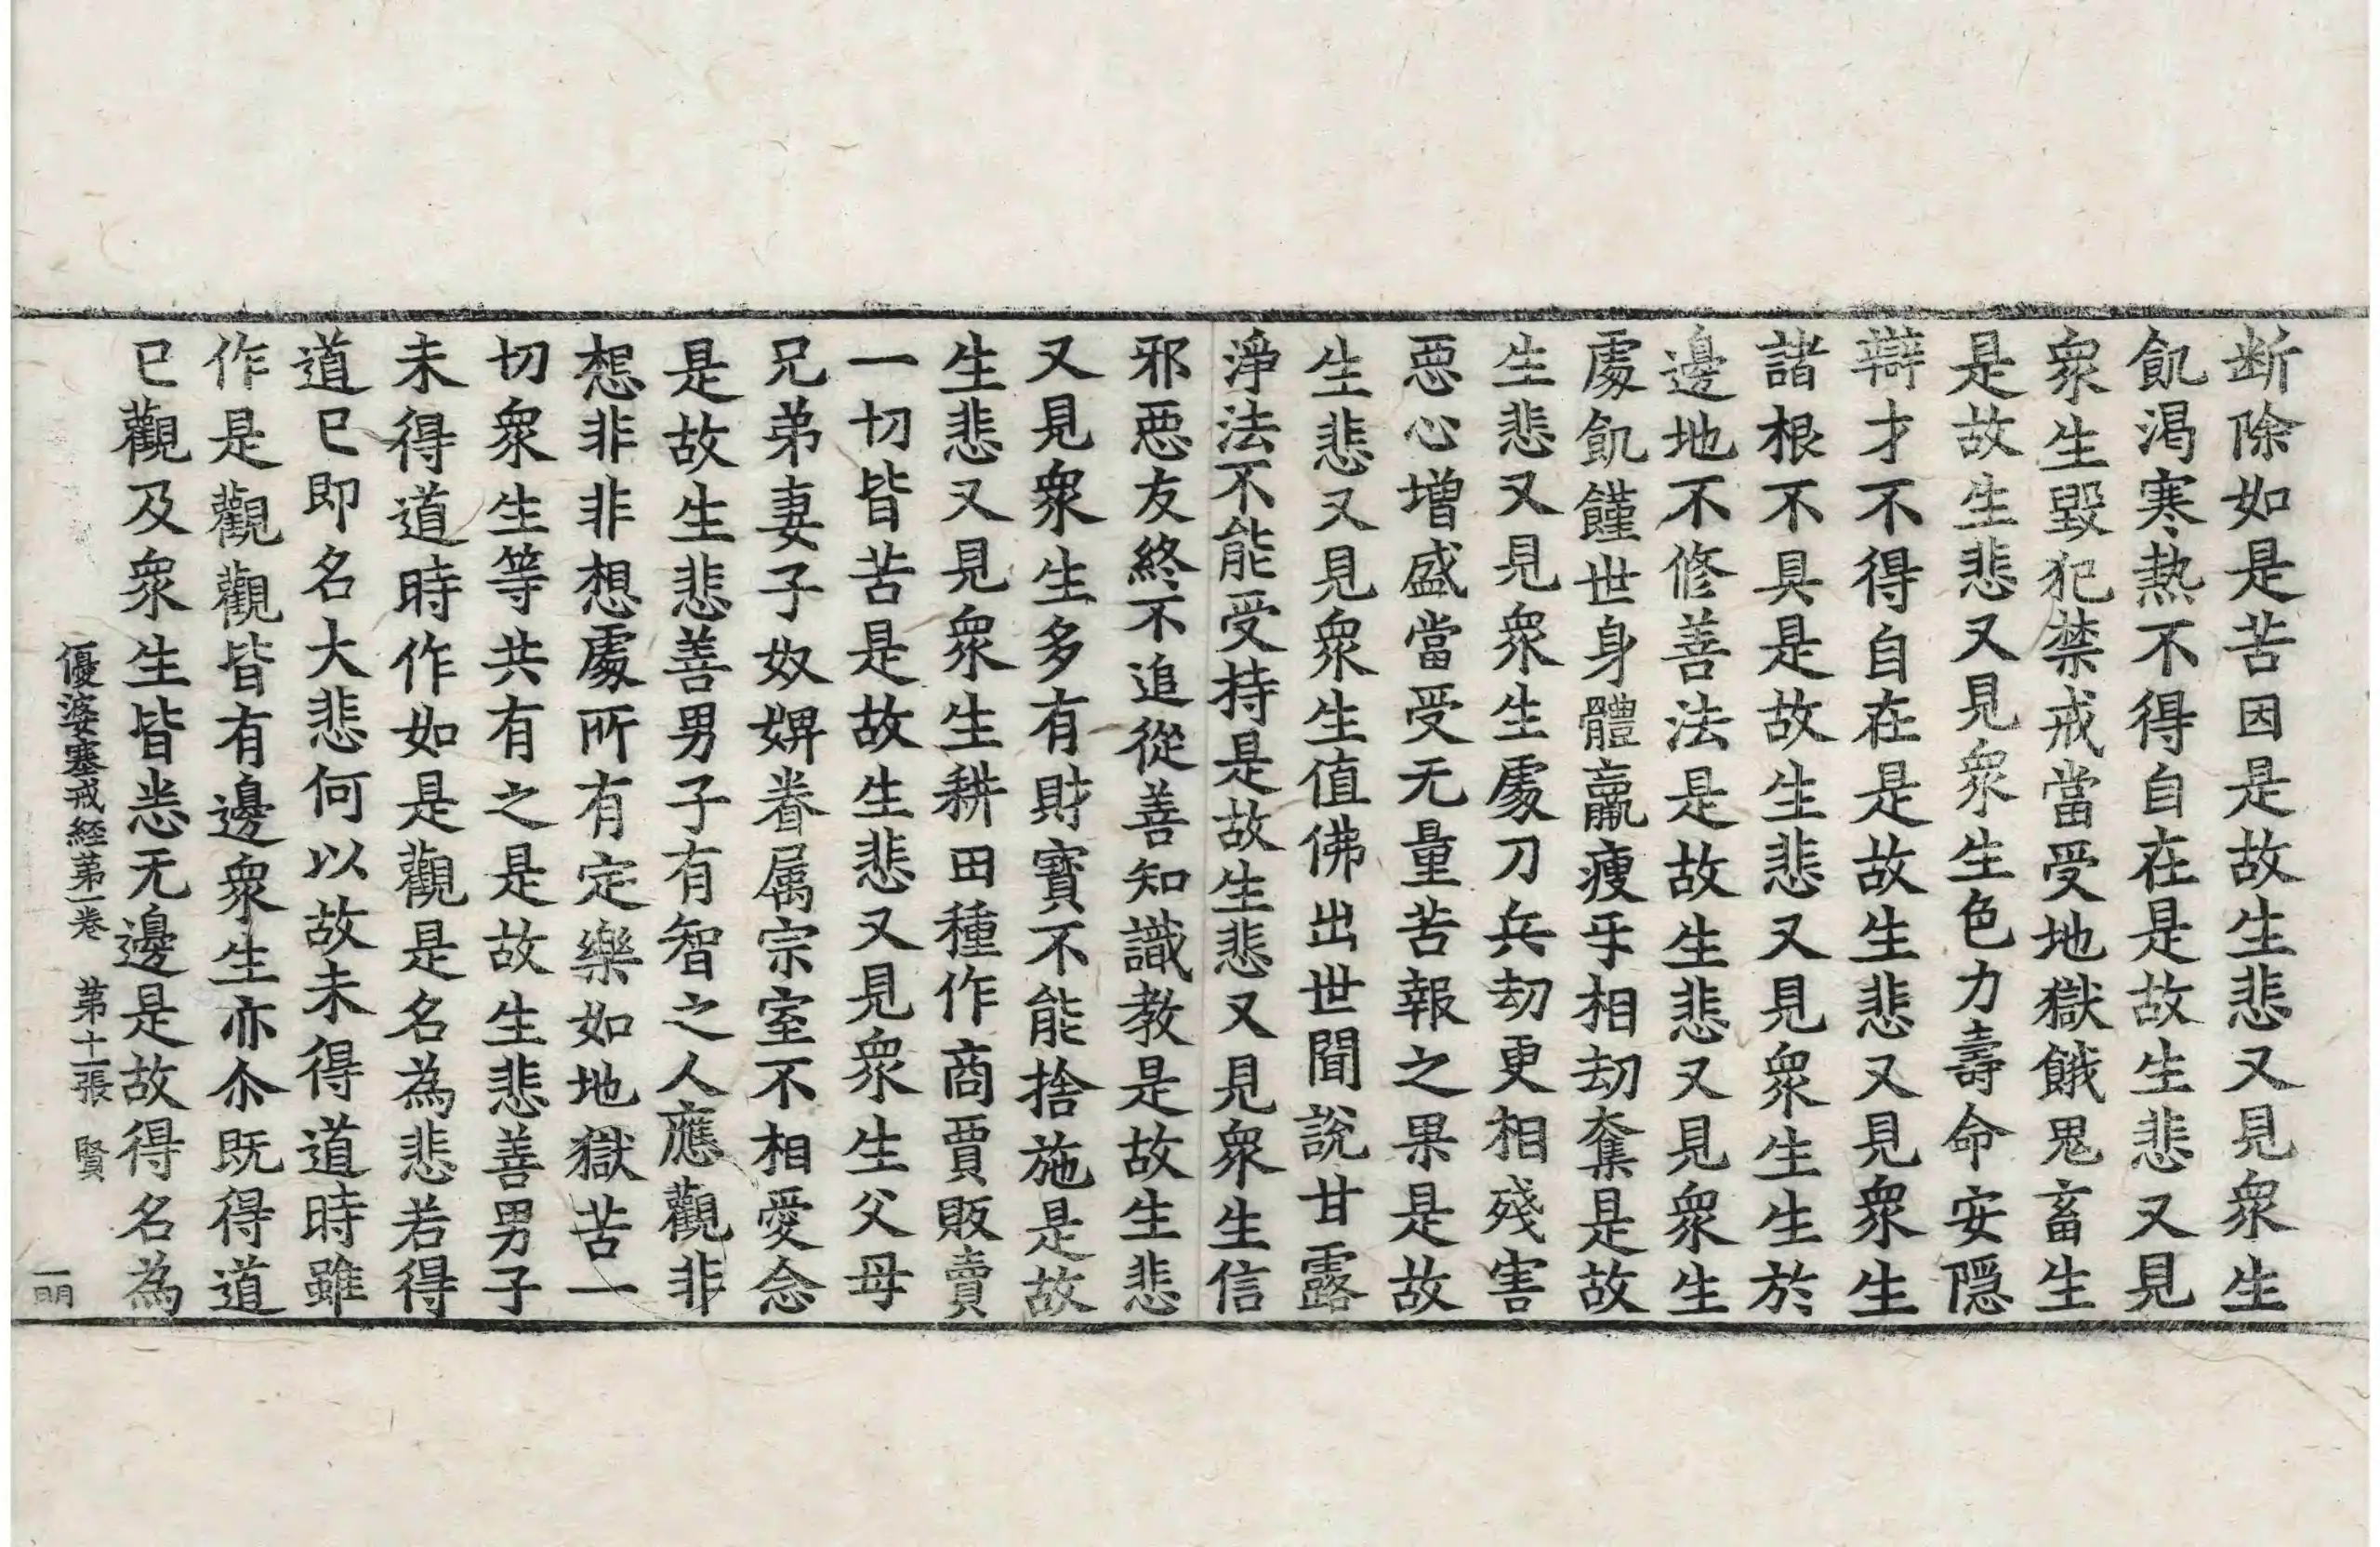 断除如是苦因是故生悲又見衆生
飢渴寒熱不得自在是故生悲又見
衆生毀犯禁戒當受地獄餓鬼畜生
是故生悲又見衆生色力壽命安隱
辯才不得自在是故生悲又見衆生
諸根不具是故生悲又見衆生生於
邊地不修善法是故生悲又見衆生
處飢饉世身體羸瘦乎相劫奪是故
生悲又見衆生處刀兵劫更相殘害
惡心增盛當受无量苦報之果是故
生悲又見衆生值佛出世聞說甘露
淨法不能受持是故生悲又見衆生信
邪惡友終不追從善知識教是故生悲
又見衆生多有財寶不能捨施是故
生悲又見衆生耕田種作商賈販賣
一切皆苦是故生悲又見衆生父母
兄弟妻子奴婢眷属宗室不相愛念
是故生悲善男子有智之人應觀非
想非非想處所有定樂如地獄苦一
切衆生等共有之是故生悲善男子
未得道時作如是觀是名為悲若得
道已即名大悲何以故未得道時雖
作是觀觀皆有邊衆生亦尒既得道
已觀及衆生皆悉无邊是故得名為
優婆塞戒経苐一卷 苐十二張 賢